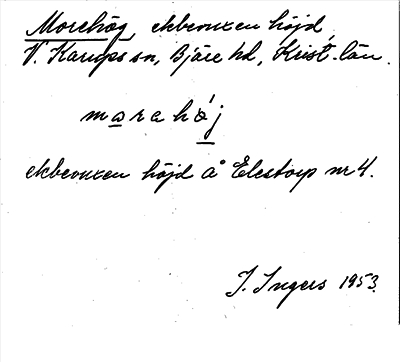 Morehög, ekbevuxen höjd
V. Karups sn, Bjäre hd, Krist. län.
marahøj
ekbevuxen höjd å Elestorp nr 4.
I. Ingers 1953.